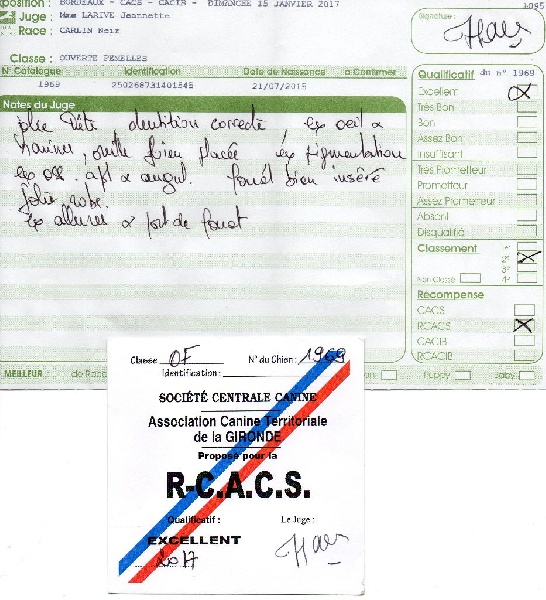 position : BORDEAUX - CACS - CACIB - DIMANCHE 15 JANVIER 2017
Juge : Mme LARIVE Jeannette
Race : CARLIN Noir
Signature :
Classe : OUVERTE FEMELLES
N° Catalogue Identification Date de Naissance a Confirmer
1969 250268731401545 21/07/2015
Notes du Juge
jolie tête dentition correcte ex oeil &
oreille bien placée ex pigmentation
ex oss. apl & angul. fouet bien inséré
jolie robe
ex allures & port de fouet
Qualificatif du n° 1969
Excellent
Très Bon
Bon
Assez Bon
Insuffisant
Très Prometteur
Prometteur
Assez Prometteur
Absent
Disqualifié
Classement
1er
2e
3e
4e
Non Classé
Récompense
CACS
RCACS
CACIB
RCACIB
MEILLEUR : de Race Puppy Baby
Classe : OF N° du Chien : 1969
Identification :
SOCIÉTÉ CENTRALE CANINE
Association Canine Territoriale
de la GIRONDE
Proposé pour la
R-C.A.C.S.
Qualificatif : Le Juge :
EXCELLENT
2017